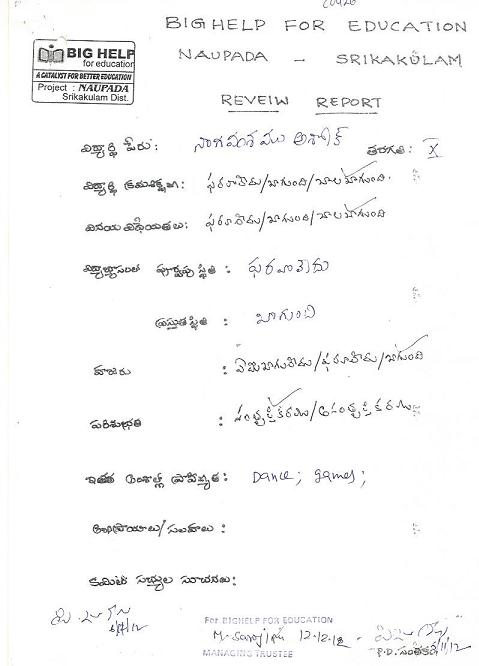 BIGHELP FOR EDUCATION
NAUPADA - SRIKAKULAM
BIG HELP
for education
A CATALYST FOR BETTER EDUCATION
Project : NAUPADA
Srikakulam Dist.
REVEIW REPORT
విద్యార్థి పేరు: అశోక్ తరగతి: X
విద్యార్థి క్రమశిక్షణ: ఫరవాలేదు/బాగుంది/చాలా బాగుంది.
వినయ విధేయతలు: ఫరవాలేదు/బాగుంది/చాలా బాగుంది
పూర్వపు స్థితి : ఫరవాలేదు
ప్రస్తుత స్థితి : బాగుంది
హాజరు : ఏమి బాగులేదు/ఫరవాలేదు/బాగుంది
పరిశుభ్రత : సంతృప్తికరము/అసంతృప్తికరము
ఇతర అంశాల్లో ప్రావీణ్యత: Dance; games;
అభిప్రాయాలు/సలహాలు :
కమిటి సభ్యుల సూచనలు:
For BIGHELP FOR EDUCATION
12-12-12
MANAGING TRUSTEE